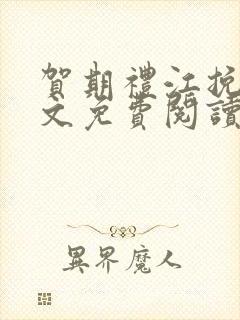 賀期禮江挽
文免費閱讀
異界魔人